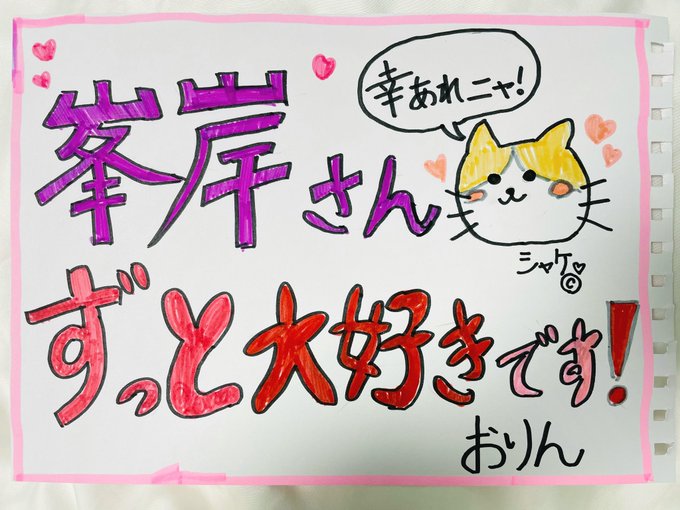 幸あれニャ!
峯岸さん
シャケ♥
©
ずっと大好きです!
おりん